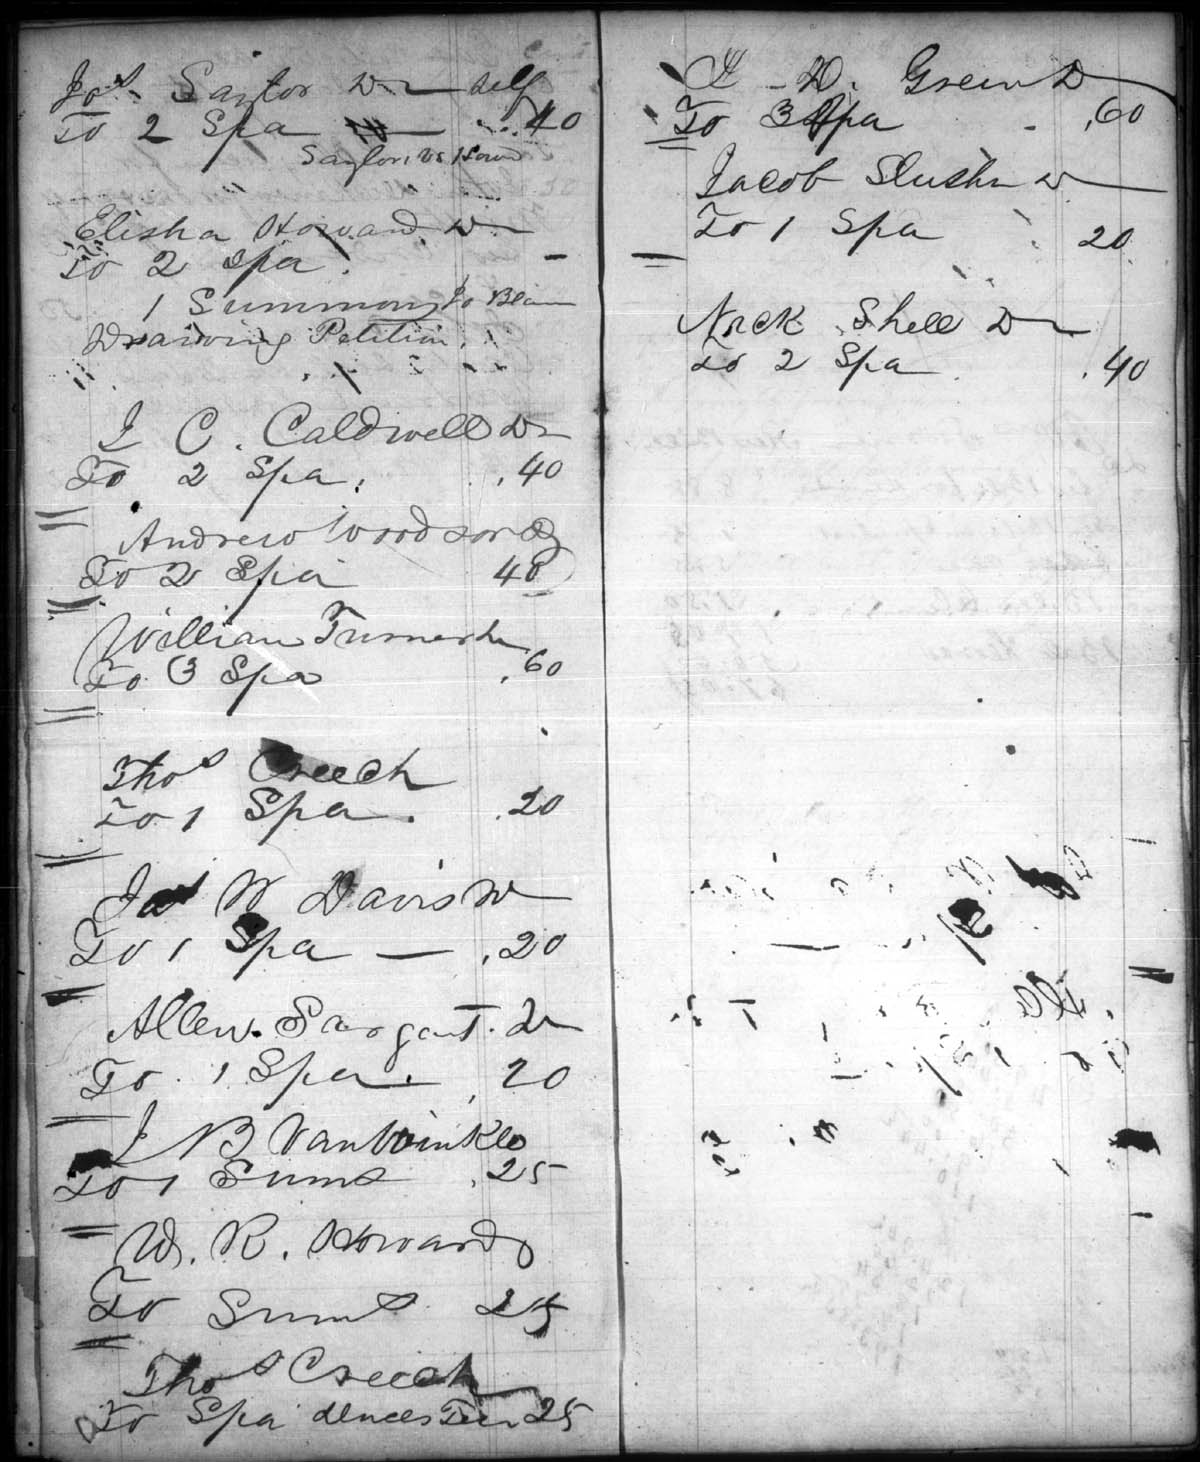 Jos Saylor Dr self
To 2 Spa .40
Saylor vs Howd
Elisha Howard Dr
To 2 Spa
1 Summons Jo
Drawing Petition
J C. Caldwell Dr
To 2 Spa. .40
Andrew Woodson Dr
To 2 Spa 40
William Turner
To 3 Spa .60
Thos Creech
To 1 Spa .20
Jas W Davis Dr
To 1 Spa — .20
Allen Sargent Dr
To 1 Spa. 20
J B VanWinkle
To 1 Sums .25
W. R. Howard
To Sums 25
Thos Creech
To Spa 25
D. Green Dr
To 3 Spa .60
Jacob Slusher Dr
To 1 Spa 20
Nick Shell Dr
To 2 Spa .40